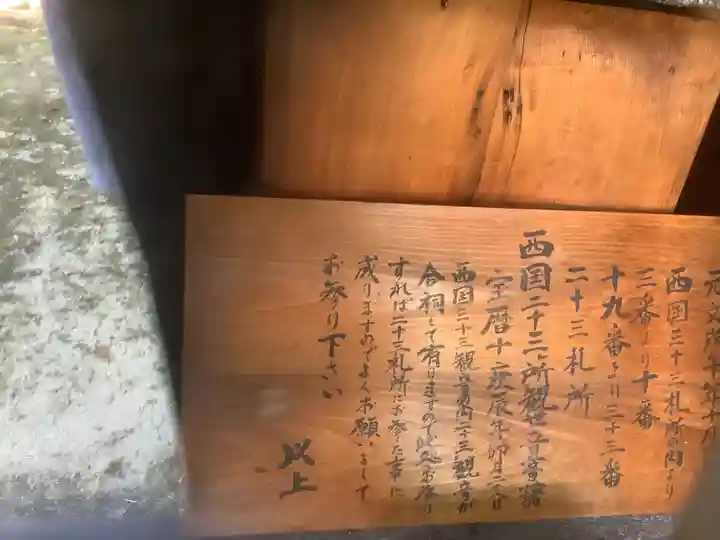 西国三十三札所の内より
三番より十番
十九番より二十三番
二十三札所
西国二十三ヶ所観世音菩薩
宝暦十 辰年卯月二十八日
西国三十三観音の内二十三観音が
合祠して有りますので此処お参り
すれば二十三札所にお参りした事に
成りますのでよくお願いをして
お参り下さい
以上